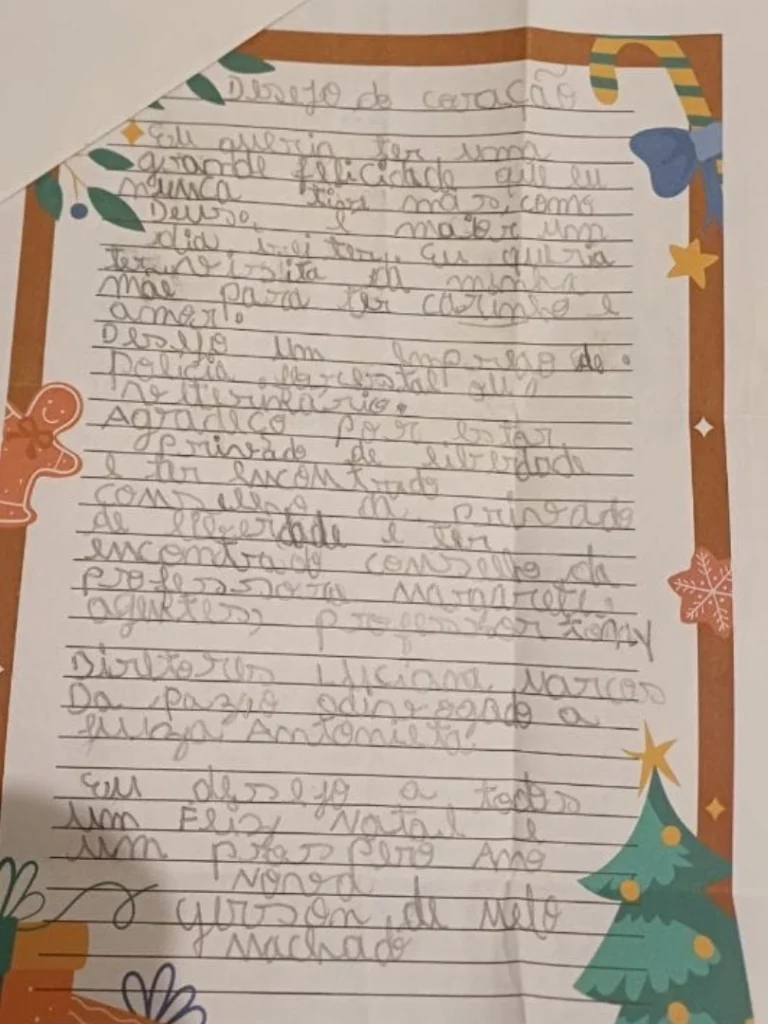 Desejo do coração
Eu queria ter uma
grande felicidade que eu
nunca tive mas, como
Deus, é maior um
dia irei ter. Eu queria
ter visita da minha
mãe para ter carinho e
amor!
Desejo um emprego de
policia ou
veterinário.
Agradeço por estar
privado de liberdade
e ter encontrado
conselho da privado
de liberdade e ter
encontrado conselho da
professora Margareti,
agentes, professor tony
Diretores Luciana, Marcos
Da advogado a
juiza Antonieta.
Eu desejo a todos
um Feliz Natal e
um prospero Ano
Novo
gerson de Melo
Machado